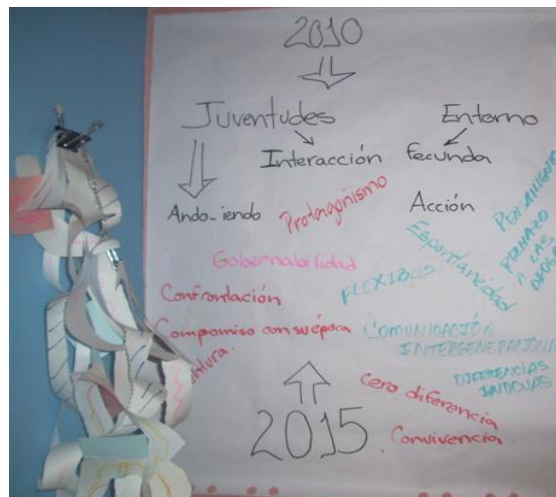 2010
Juventudes Entorno
Interacción fecunda
Ando-iendo Protagonismo Acción
Espontaneidad
Gobernabilidad
FLEXIBLES
Confrontación
Compromiso con su época
COMUNICACIÓN
INTERGENERACIONAL
DIFERENCIAS
cero diferencia
2015
Convivencia.